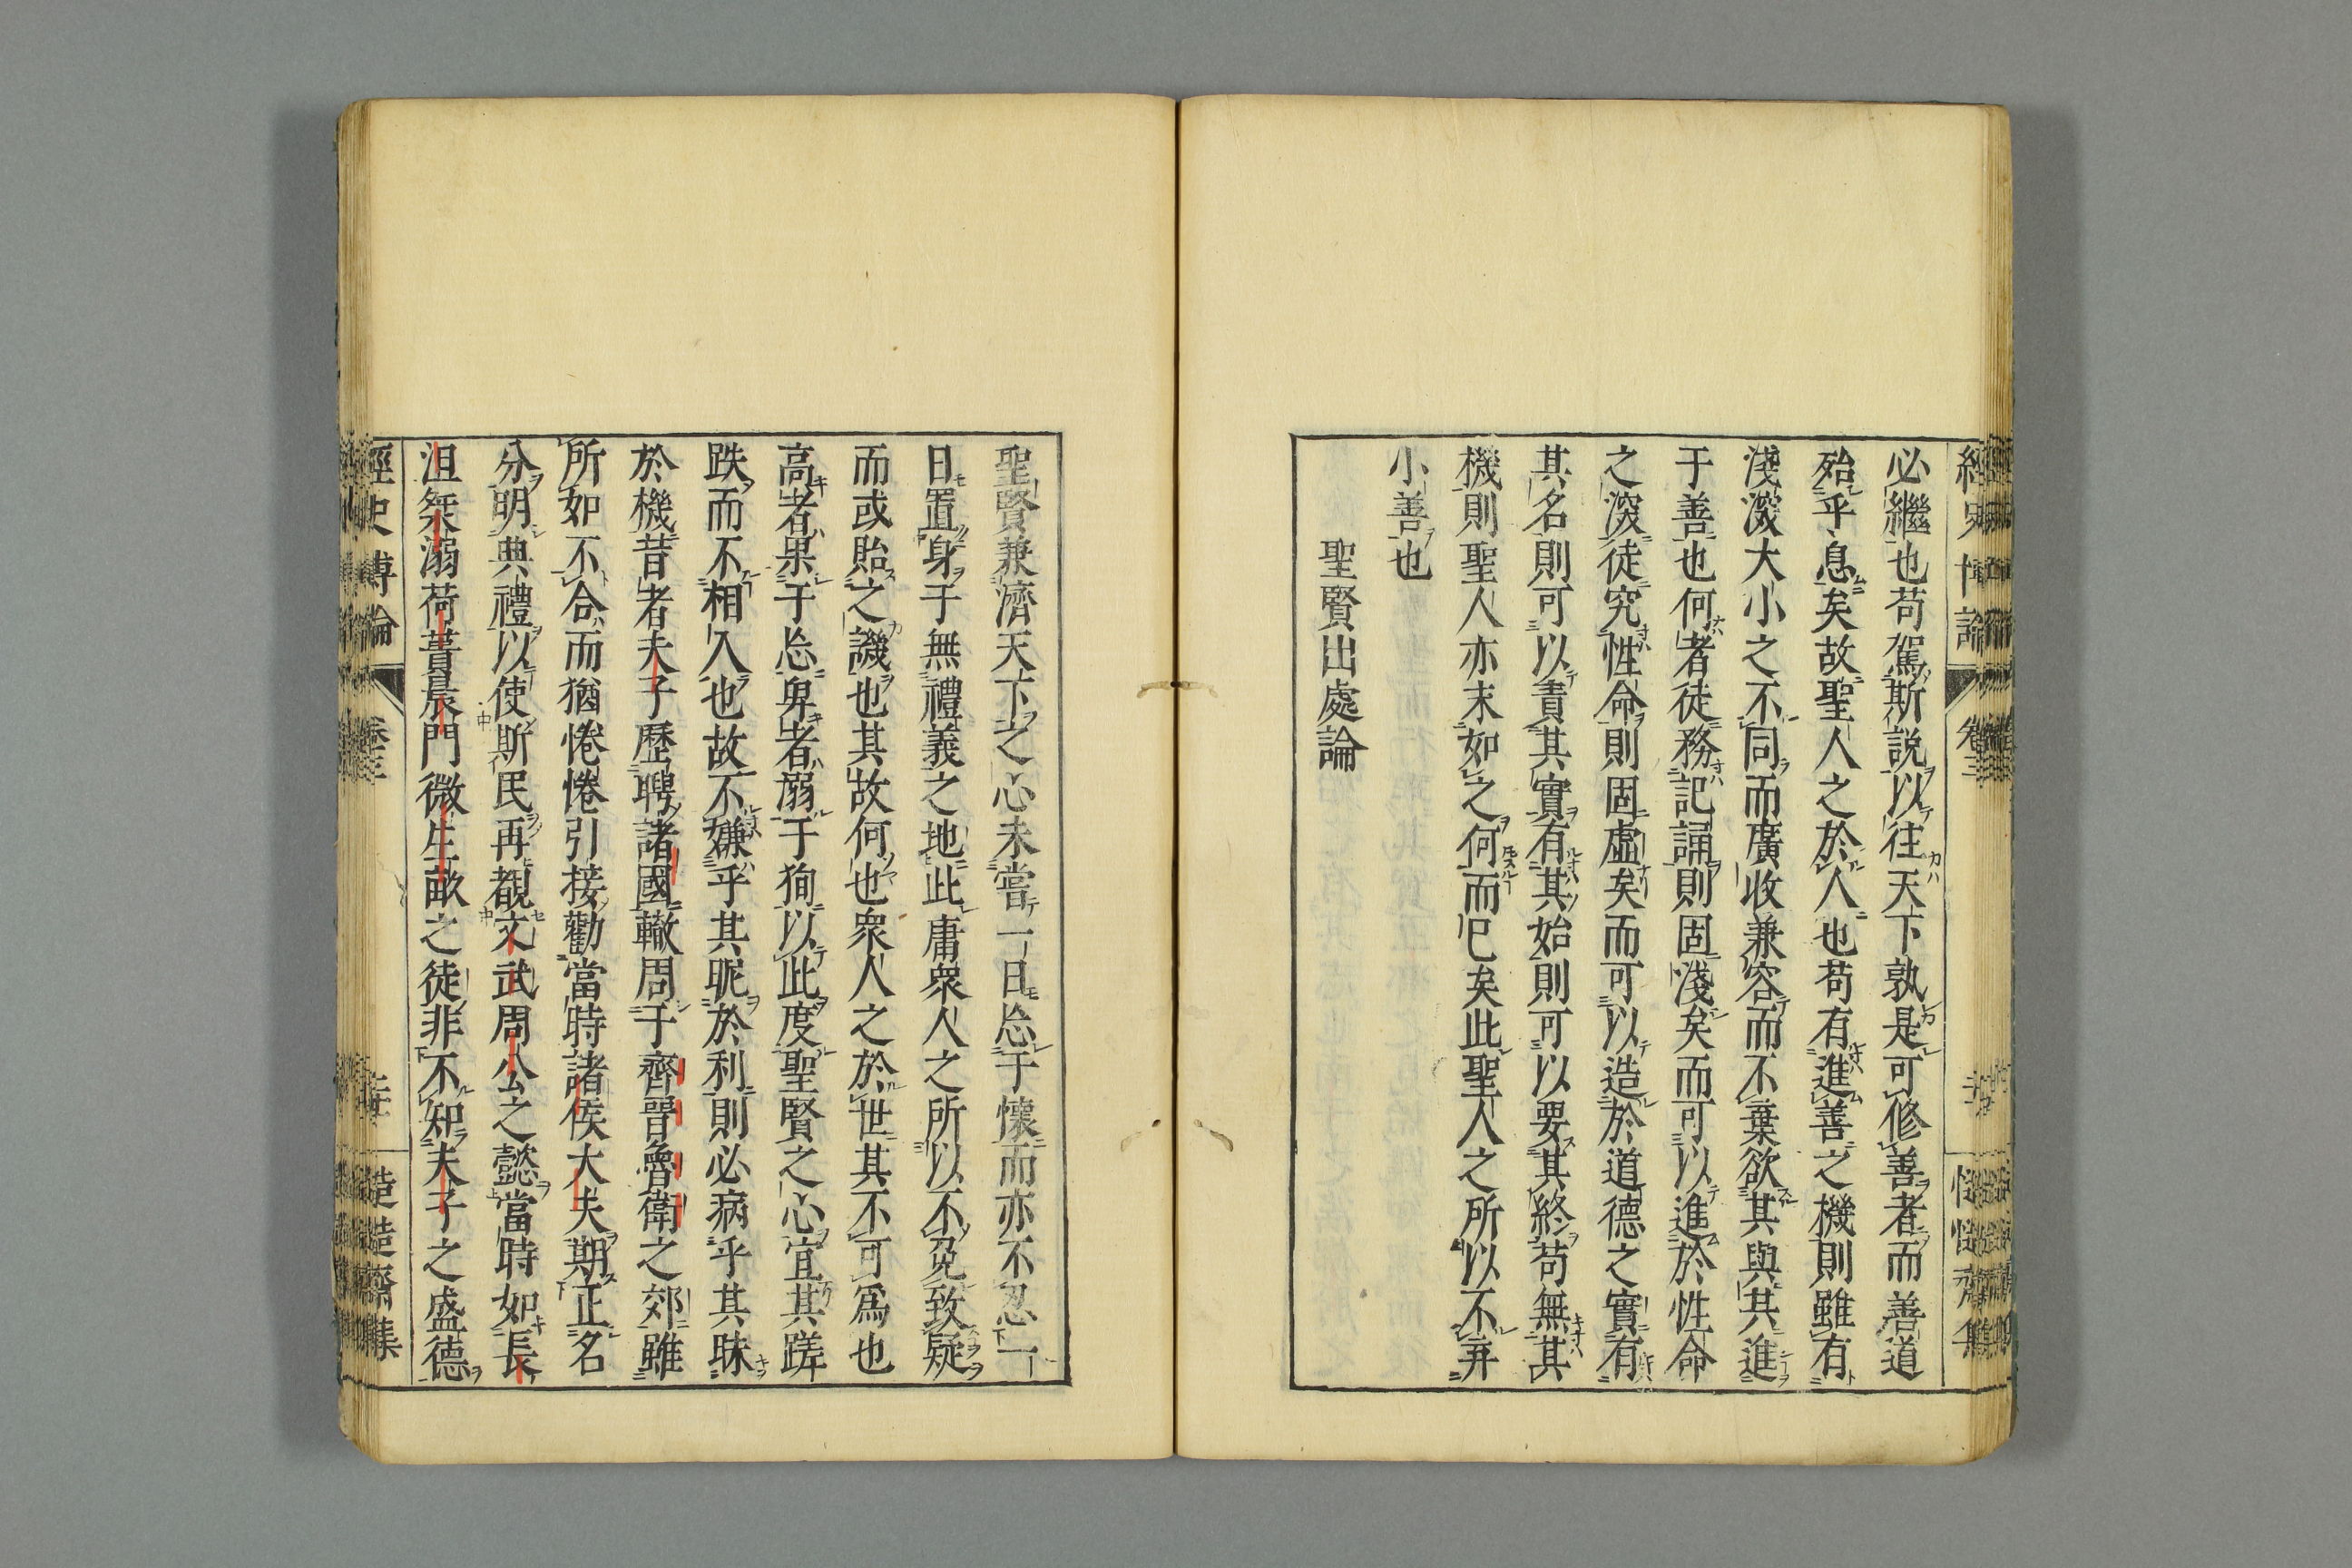 必繼也苟駕斯説以往天下孰是可修善者而善道
殆乎息矣故聖人之於人也苟有進善之機則雖有
淺深大小之不同而廣收兼容而不棄欲其與其進
于善也何者徒務記誦則固淺矣而可以進於性命
之深徒究性命則固虛矣而可以造於道德之實有
其名則可以責其實有其始則可以要其終苟無其
機則聖人亦末如之何而已矣此聖人之所以不弃
小善也
聖賢出處論
聖賢兼濟天下之心未嘗一日忘于懷而亦不忍一
日置身于無禮義之地此庸衆人之所以不免致疑
而或貽之譏也其故何也衆人之於世其不可爲也
高者果于忘卑者溺于狥以此度聖賢之心宜其蹉
跌而不相入也故不嫌乎其昵於利則必病乎其昧
於機昔者夫子歷聘諸國轍周于齊晉魯衛之郊雖
所如不合而猶惓惓引接勸當時諸侯大夫期正名
分明典禮以使斯民再覩文武周公之懿當時如長
沮桀溺荷蕢晨門微生畝之徒非不知夫子之盛德
經史博論
卷三